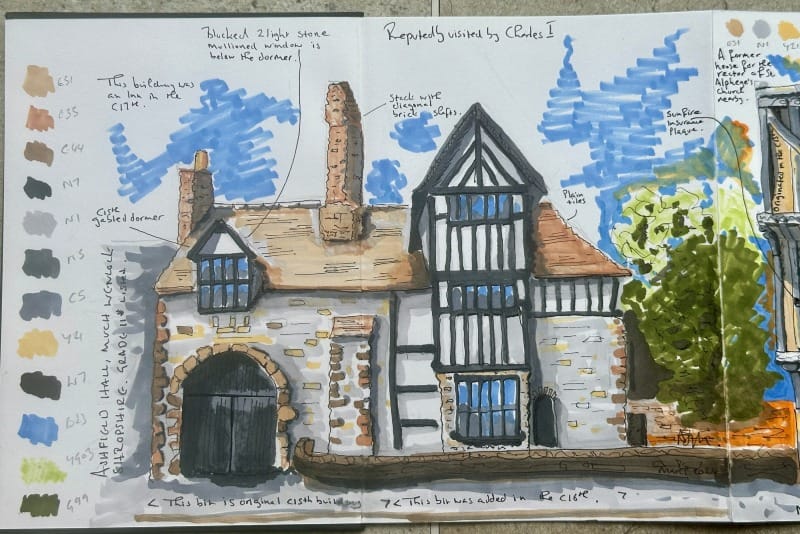 Blocked 2 light stone
mullioned window is
below the dormer!
Reputedly visited by Charles I
This building was
an Inn in the
C17th.
Stack with
diagonal
brick strips.
Sun Fire
Insurance
Plaque.
A former
house for the
rector of St
Alphege's
church
nearby.
Plain
tiles
C15th
gabled dormer
ASHFIELD HALL, MUCH WENLOCK
SHROPSHIRE. GRADE II* LISTED.
E51
E35
E44
N7
N1
N5
C5
Y21
W7
B23
YG03
G99
E51
N1
Y21
Originated in the
< This bit is original C15th building >
< This bit was added in the C16th. >